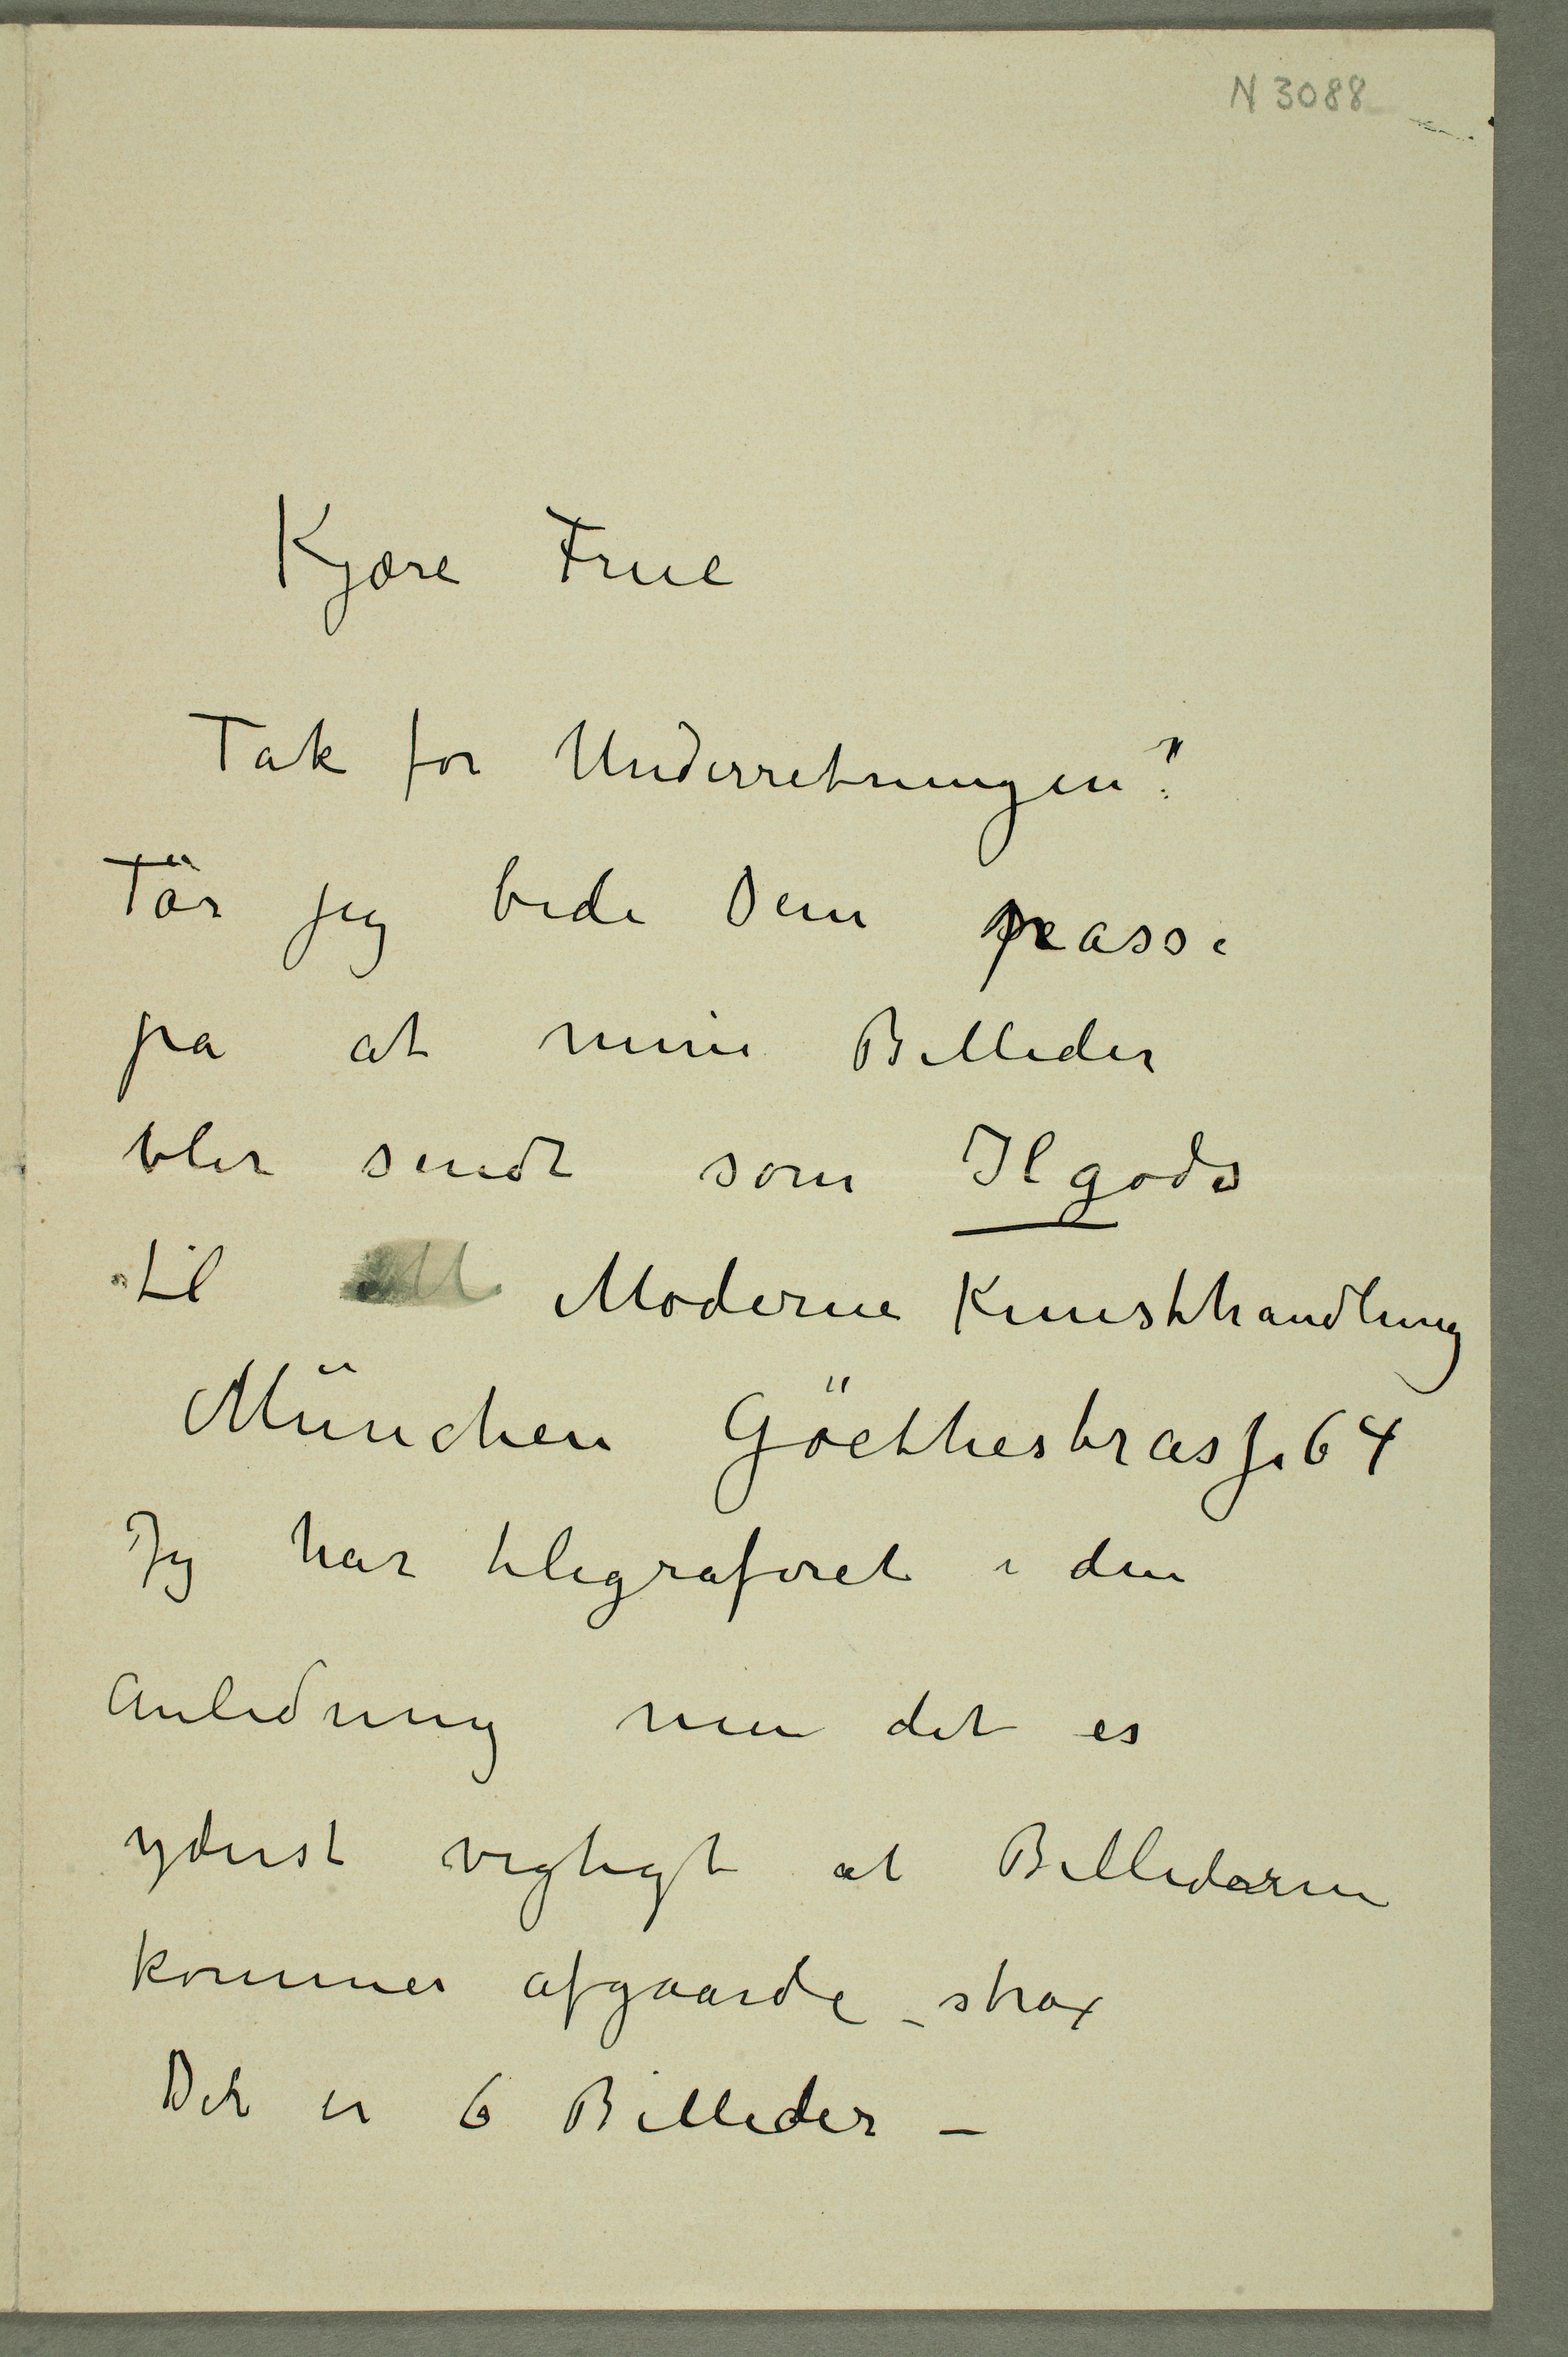 N 3088
Kjære Frue
Tak for Underretningen!
Tör jeg bede Dem passe
pa at mine Billeder
blir sendt som Ilgods
til Moderne Kunsthandlung
München Göethestrasse 64
Jeg har telegraferet i den
anledning men det er
yderst vigtigt at Billederne
kommer afgaarde – strax
Det er 6 Billeder –